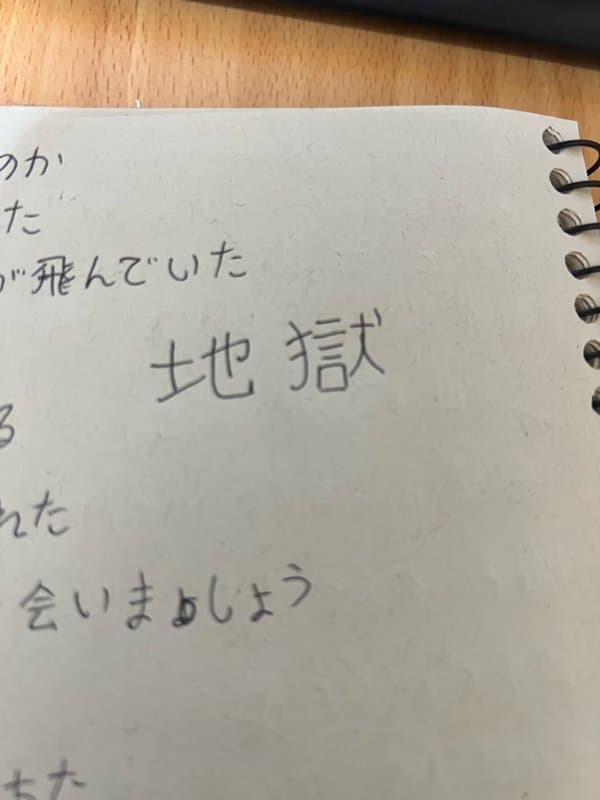 のか
た
が飛んでいた
地獄
る
れた
会いましょう
ちた